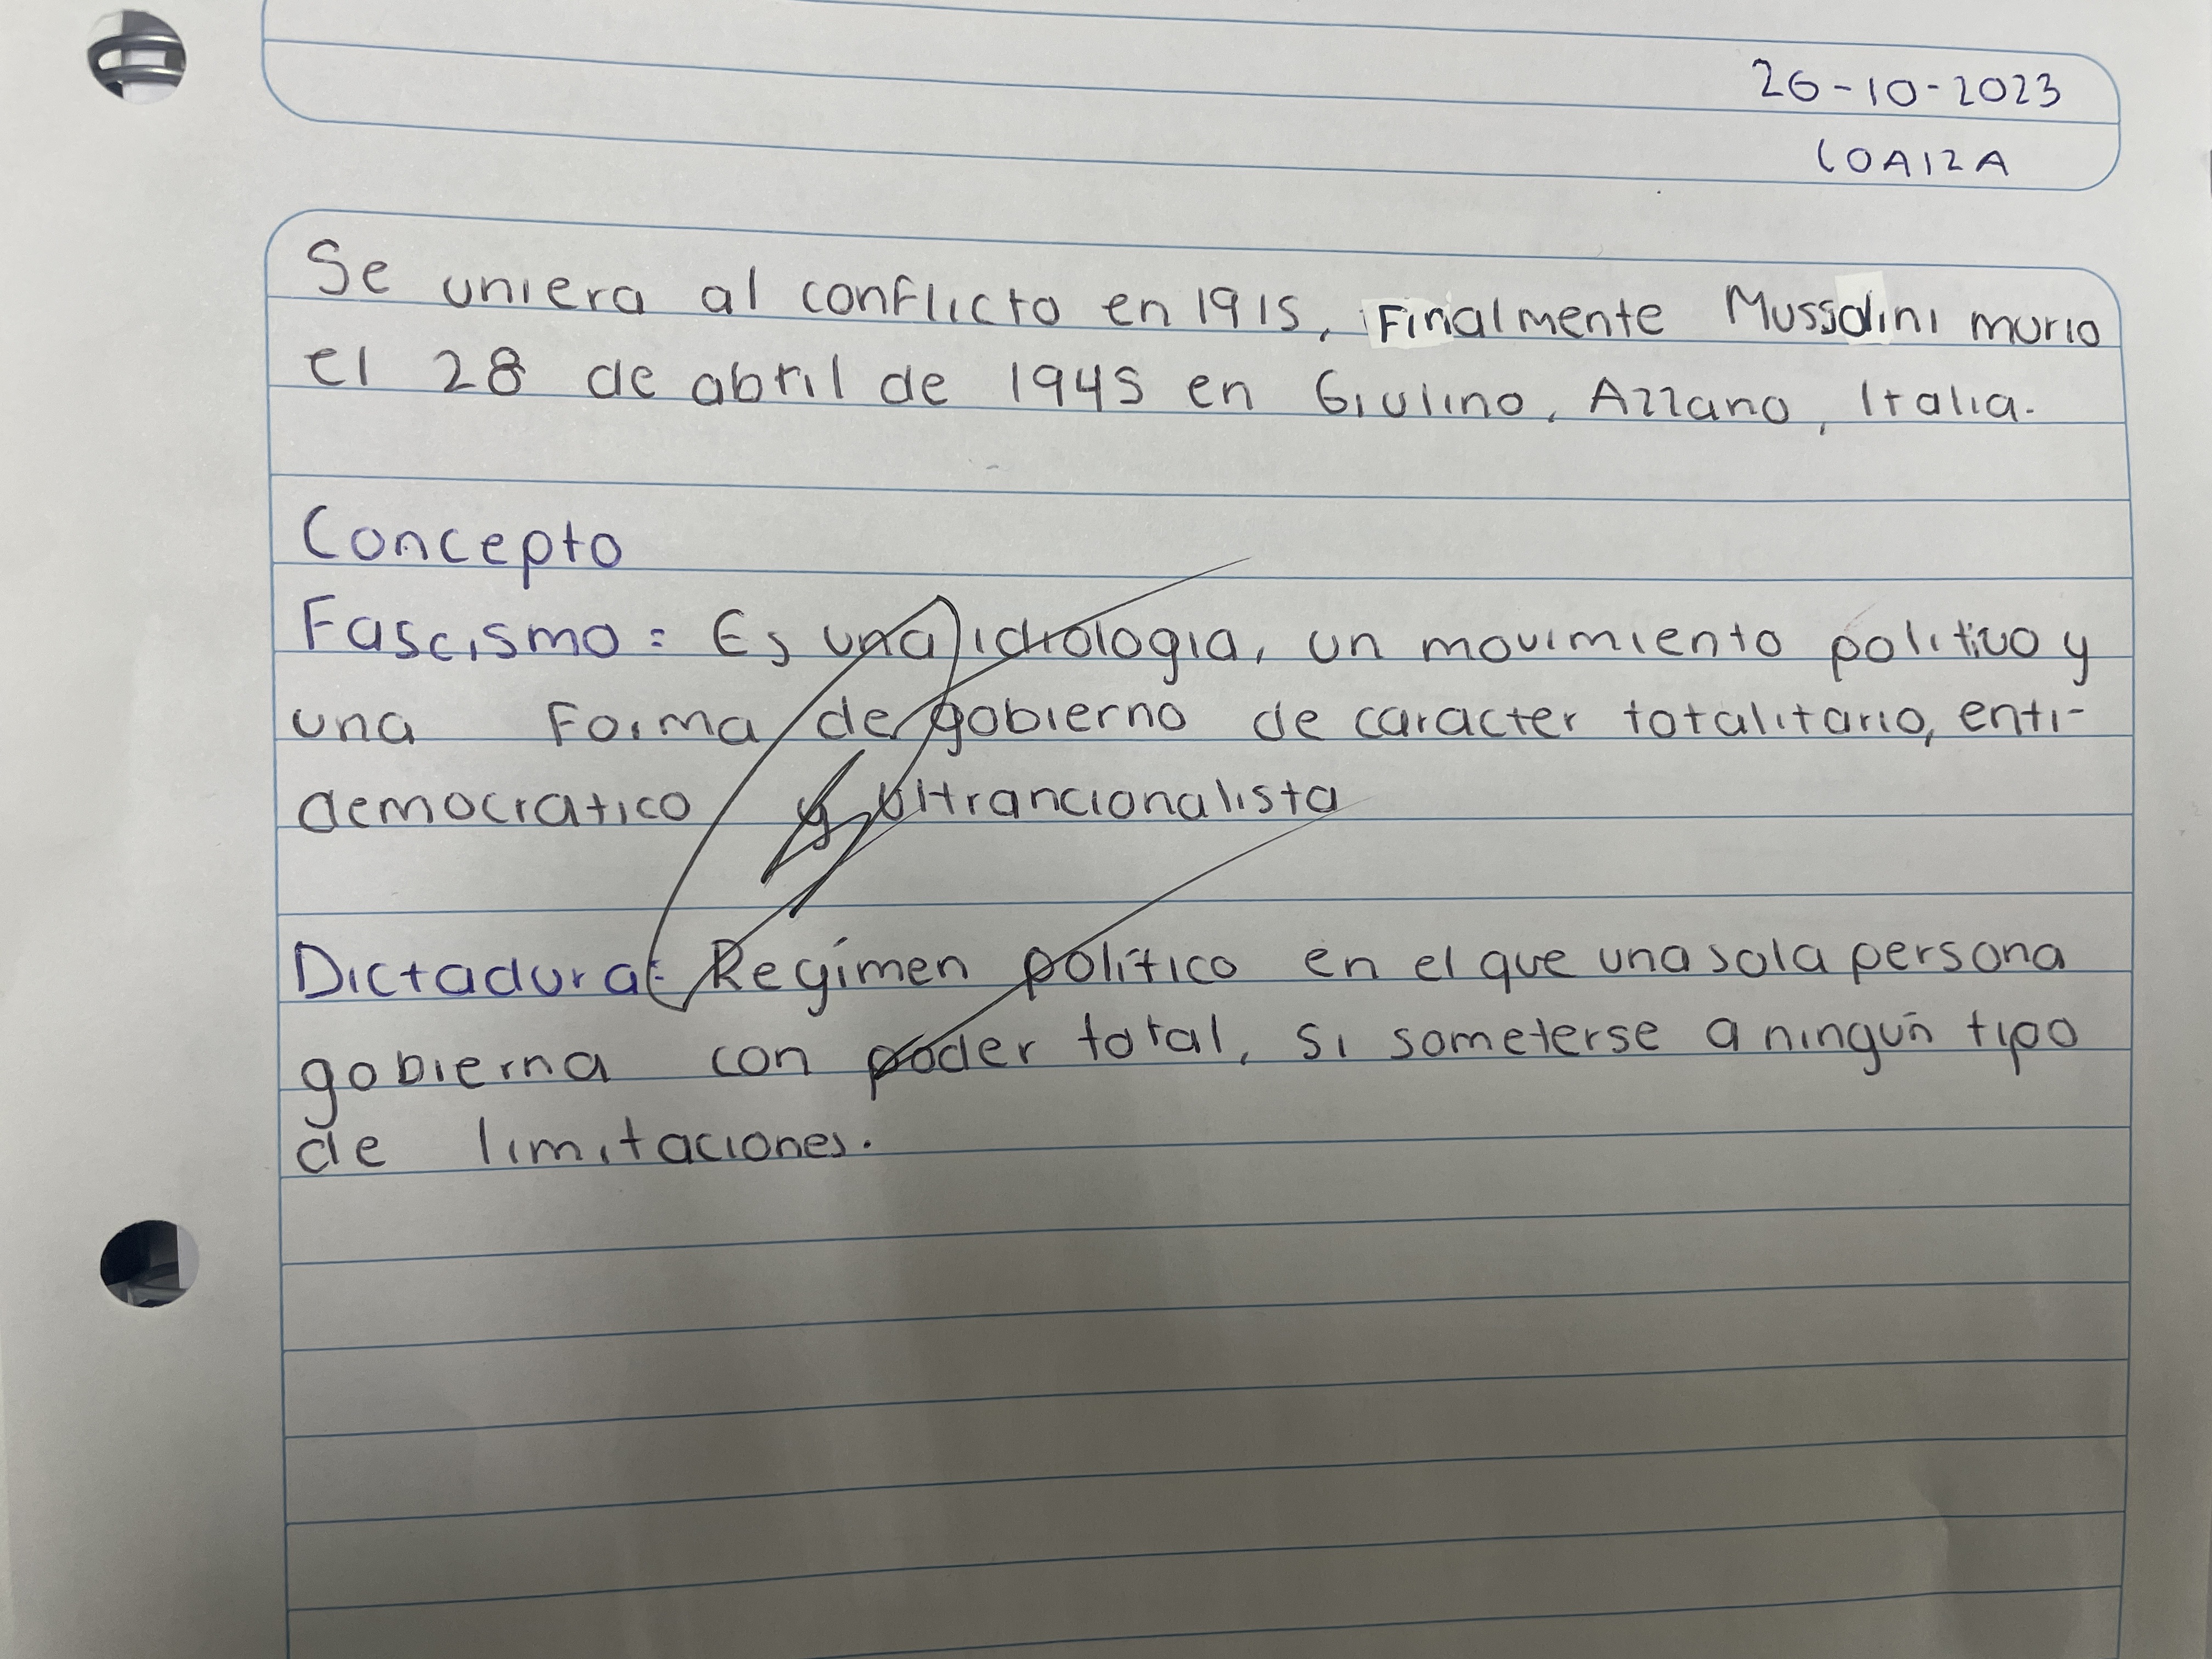 26-10-2023
COA12A
Se uniera al conflicto en 1915, Finalmente Mussolini murio
el 28 de abril de 1945 en Giulino, Azzano, Italia.
Concepto
Fascismo: Es una idiologia, un movimiento politivo y
una Forma de gobierno de caracter totalitario, enti-
democratico y ultrancionalista
Dictadura: Regímen político en el que una sola persona
gobierna con poder total, si someterse a ningún tipo
de limitaciones.